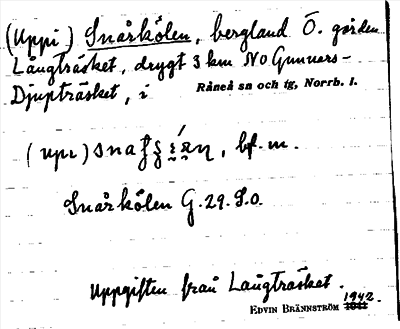 (Uppi) Snårkölen, bergland Ö. gården
Långträsket, drygt 3 km NO Gunnars-
Djupträsket, i Råneå sn och tg, Norrb. l.
(upı), bf. m.
Snårkölen G.29.S.O.
Uppgiften från Långträsket.
EDVIN BRÄNNSTRÖM 1942.